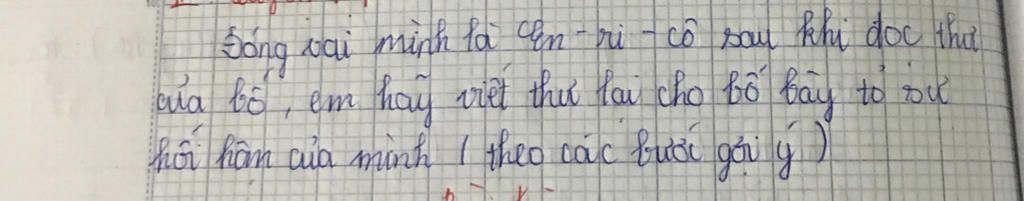 Đóng vai mình là En-ri-cô sau khi đọc thư
của bố, em hãy viết thư lại cho bố bày tỏ sự
hối hận của mình (theo các bước gợi ý)